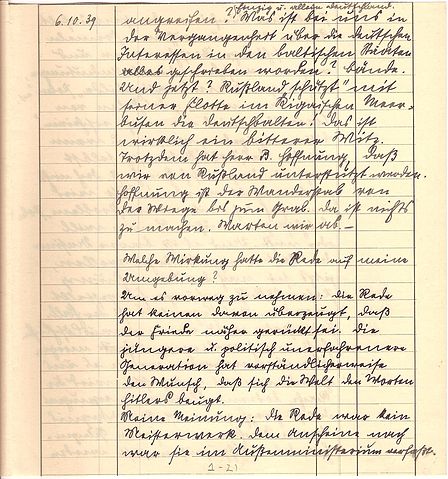 einzig u. allein Deutschland.
6.10.39 angreifen. Was ist bei uns in
der Vergangenheit über die deutschen
Interessen in den baltischen Staaten
alles geschrieben worden? Bände.
Und jetzt? Rußland „schützt" mit
seiner Flotte im Rigaischen Meer-
busen die Deutschbalten! Das ist
wirklich ein bitterer Witz.
Trotzdem hat Herr B. Hoffnung, daß
wir von Rußland unterstützt werden.
Hoffnung ist der Wanderstab von
der Wiege bis zum Grab. Da ist nichts
zu machen. Warten wir ab. –
Welche Wirkung hatte die Rede auf meine
Umgebung?
Um es vorweg zu nehmen: die Rede
hat keinen davon überzeugt, daß
der Friede näher gerückt sei. Die
jüngere u. politisch unerfahrenere
Generation hat verständlicherweise
den Wunsch, daß sich die Welt den Worten
Hitlers beugt.
Meine Meinung: Die Rede war kein
Meisterwerk. Dem Anscheine nach
war sie im Außenministerium verfaßt.